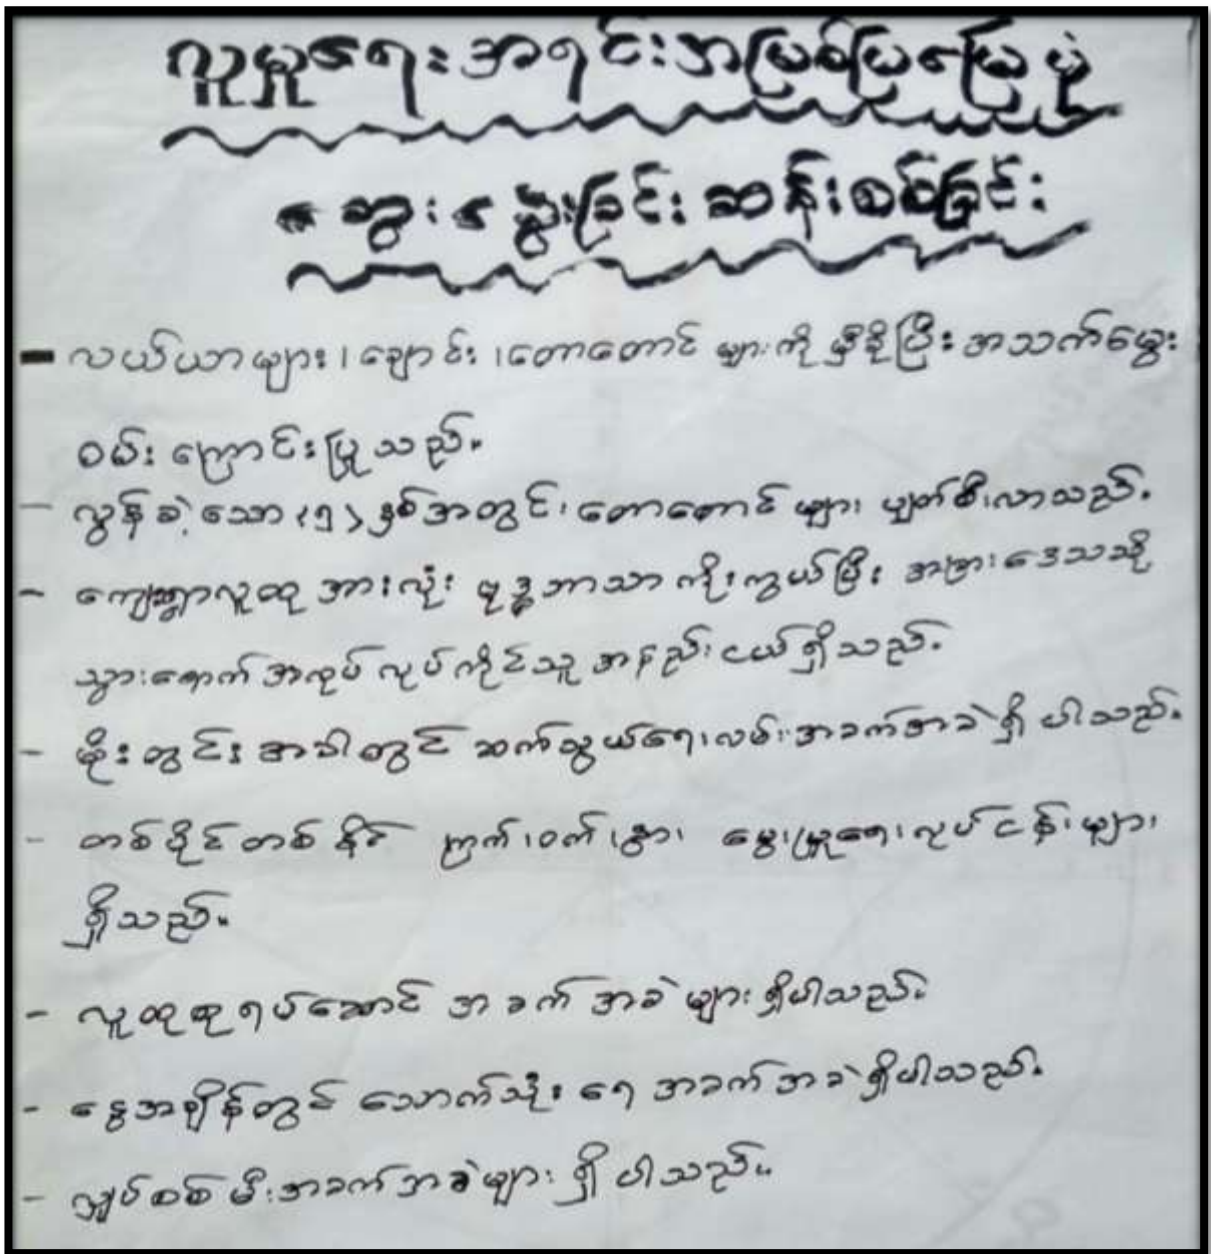 လူမှုရေးအရင်းအမြစ်ပြမြေပုံ
ဆွေးနွေးခြင်းဆန်းစစ်ခြင်း
- လယ်ယာများ၊ ချောင်း၊ တောတောင်များကို မှီခိုပြီးအသက်မွေး
ဝမ်းကြောင်းပြုသည်။
- လွန်ခဲ့သော (၅) နှစ်အတွင်း တောတောင်များ ပျက်စီးလာသည်။
- ကျေးရွာလူထုအားလုံး ဗုဒ္ဓဘာသာကိုးကွယ်ပြီး အခြားဒေသသို့
သွားရောက်အလုပ်လုပ်ကိုင်သူ အနည်းငယ်ရှိသည်။
- မိုးတွင်းအခါတွင် ဆက်သွယ်ရေးလမ်းအခက်အခဲရှိပါသည်။
- တစ်ပိုင်တစ်နိုင် ကြက်၊ ဝက်၊ နွား မွေးမြူရေးလုပ်ငန်းများ
ရှိသည်။
- လူထုစုရပ်ဆောင် အခက်အခဲများရှိပါသည်။
- နွေအချိန်တွင် သောက်သုံးရေ အခက်အခဲရှိပါသည်။
- လျှပ်စစ်မီးအခက်အခဲများ ရှိပါသည်။